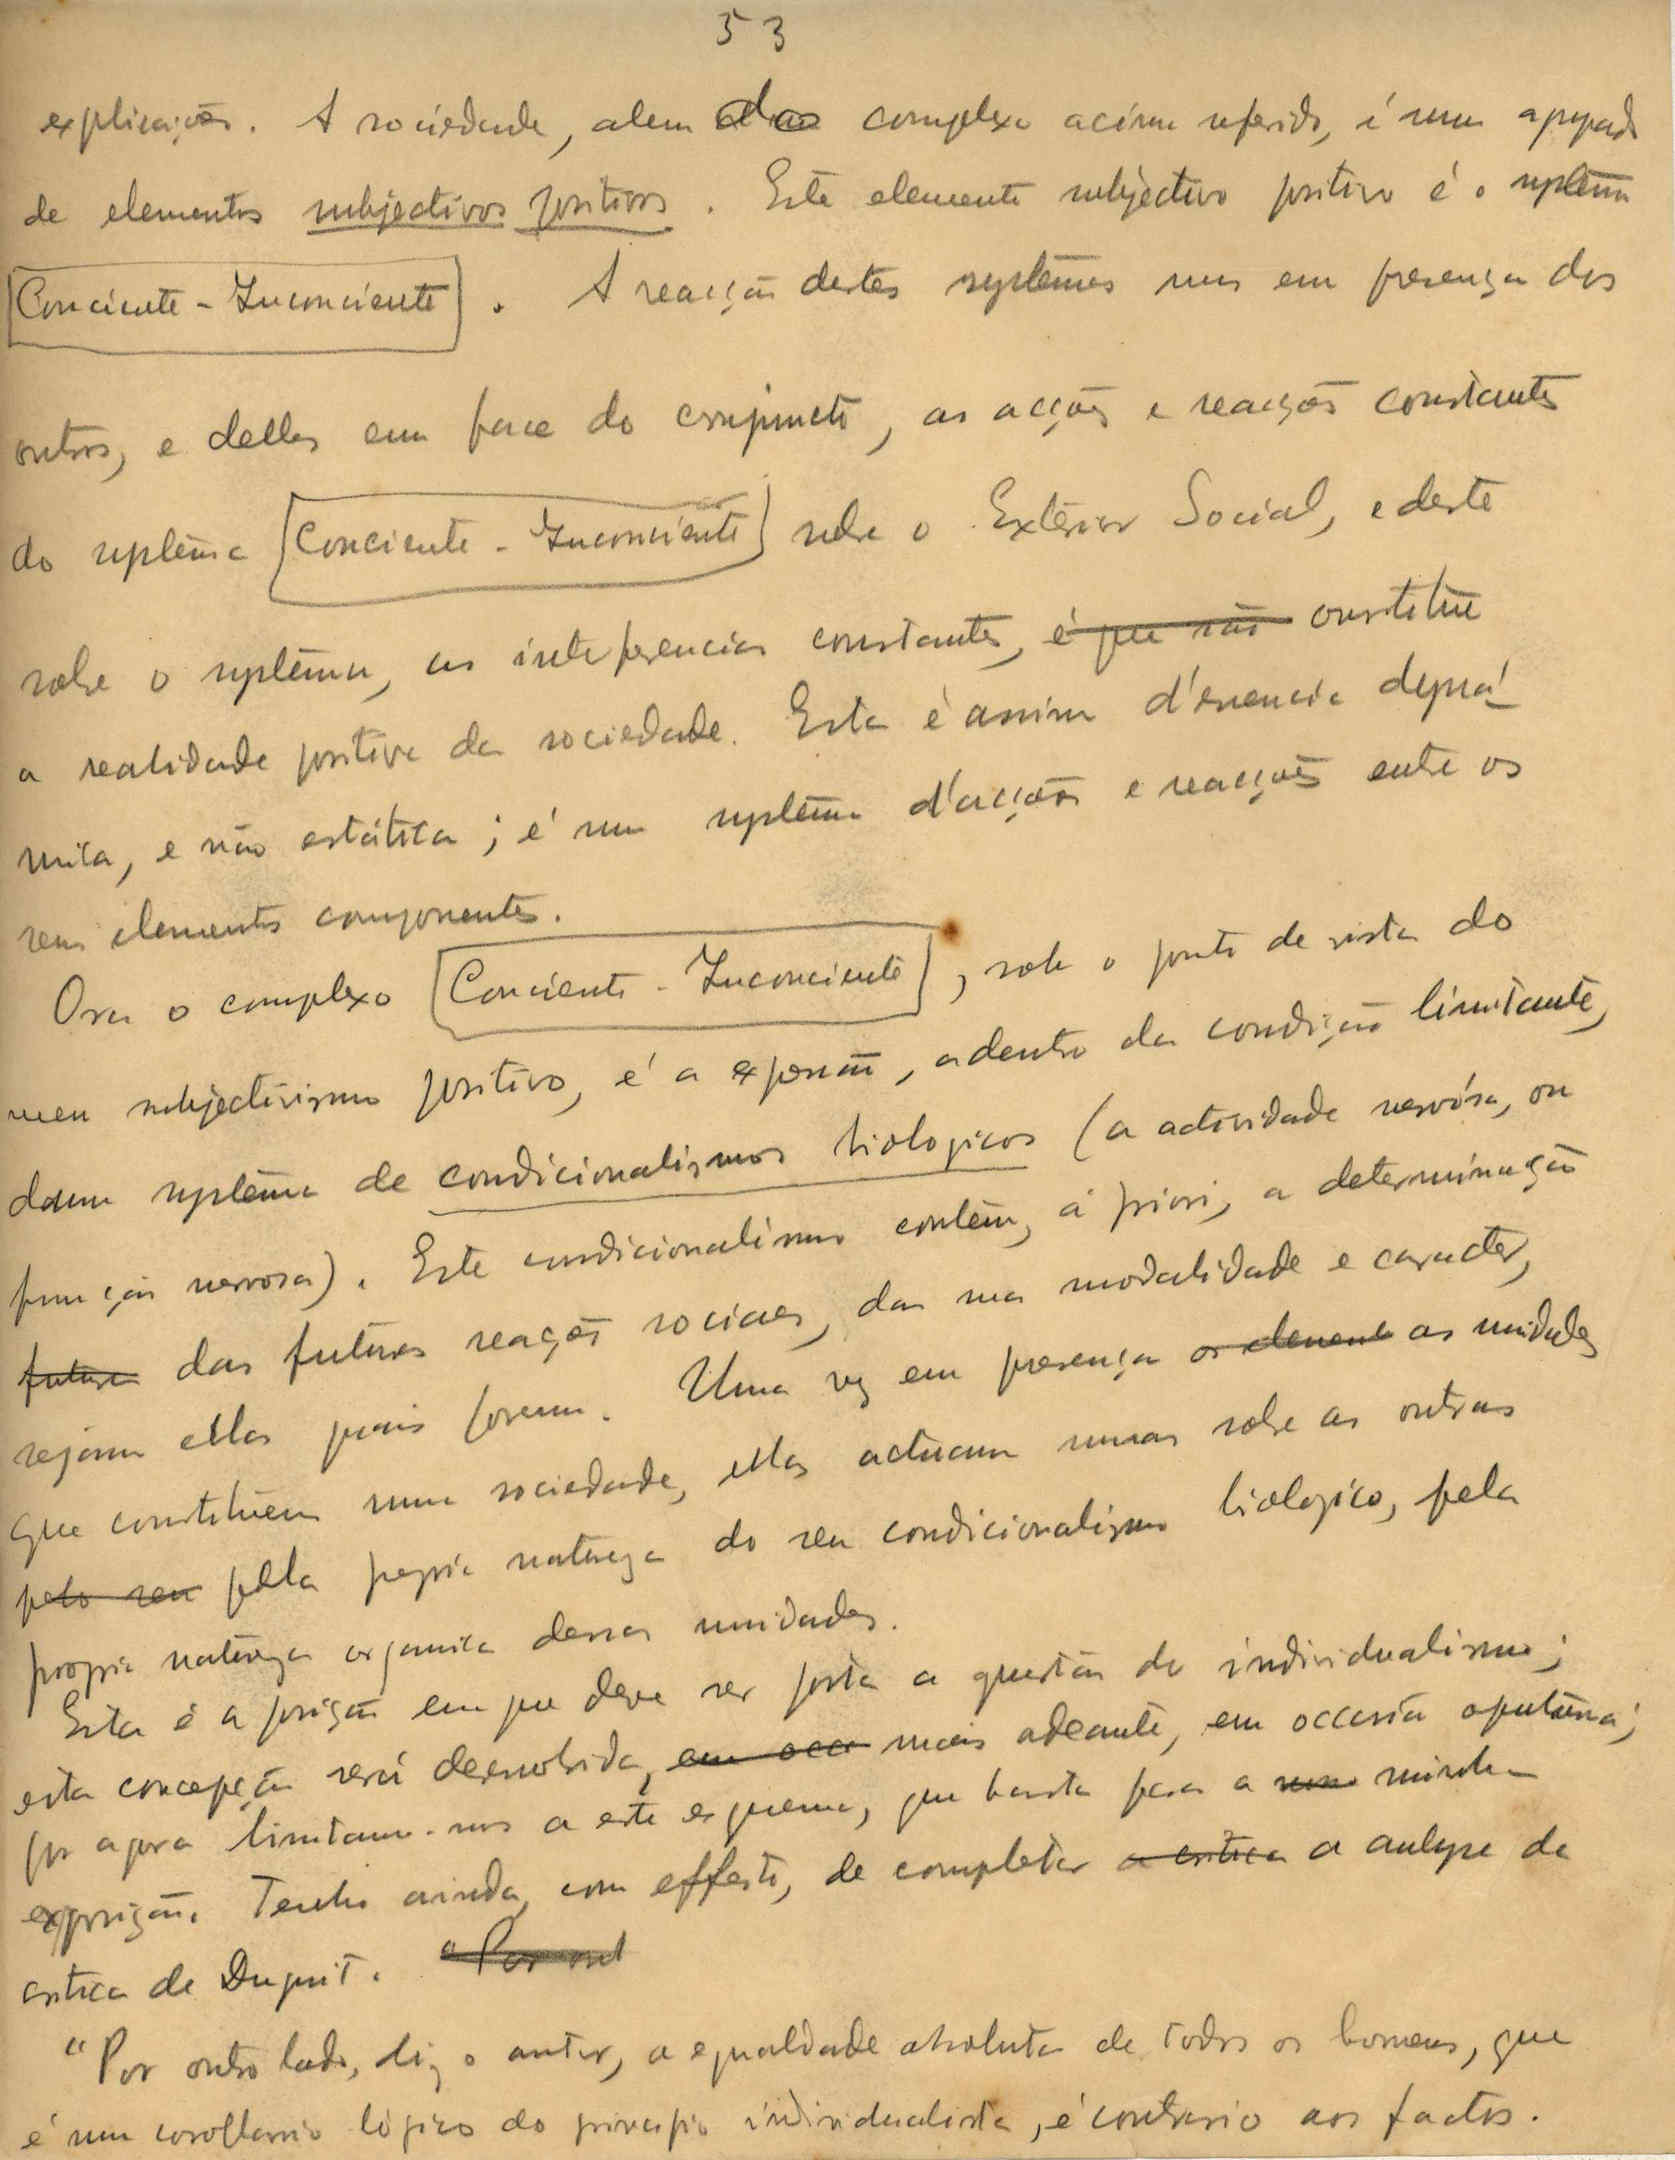 53
explicações. A sociedade, alem do complexo acima referido, é um aggregado
de elementos subjectivos positivos. Este elemento subjectivo positivo é o systema
Conciente - Inconciente. A reacção destes systemas uns em presença dos
outros, e delles em face do conjuncto, as acções e reacções constantes
do systema Conciente - Inconciente sobre o Exterior Social, e deste
sobre o systema, as interferencias constantes, é que são constitúe
a realidade positiva da sociedade. Esta é assim d'essencia dyná-
mica, e não estática; é um systema d'acções e reacções entre os
seus elementos componentes.
Ora o complexo Conciente - Inconciente, sob o ponto de vista do
meu subjectivismo positivo, é a expressão, adentro da condição limitante,
dum systema de condicionalismos biologicos (a actividade nervósa, ou
funcção nervosa). Este condicionalismo contêm, á priori, a determinação
futura das futuras reações sociaes, da sua modalidade e caracter,
sejam ellas quais forem. Uma vez em presença os element as unidades
que constitúem uma sociedade, ellas actuam umas sobre as outras
pelo seu pella propria natureza do seu condicionalismo biologico, pela
propria natureza organica dessas unidades.
Esta é a posição em que deve ser posta a questão do individualismo;
esta concepção será desenvolvida, em occa mais adeante, em occasião oportuna;
por agora limitamo-nos a este esquema, que basta para a minha
exposição. Tenho ainda, com effeito, de completar a critica a analyse da
critica de Duguit. " Por out
"Por outro lado, diz o autor, a egualdade absoluta de todos os homens, que
é um corollario lógico do principio individualista, é contrario aos factos.